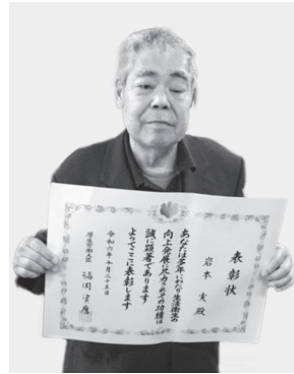 表彰状
岩本 実 殿
あなたは多年にわたり生活衛生の
向上発展に尽力されその功績は
誠に顕著であります
よってここに表彰します
令和六年十月二十五日
厚生労働大臣 福岡資麿